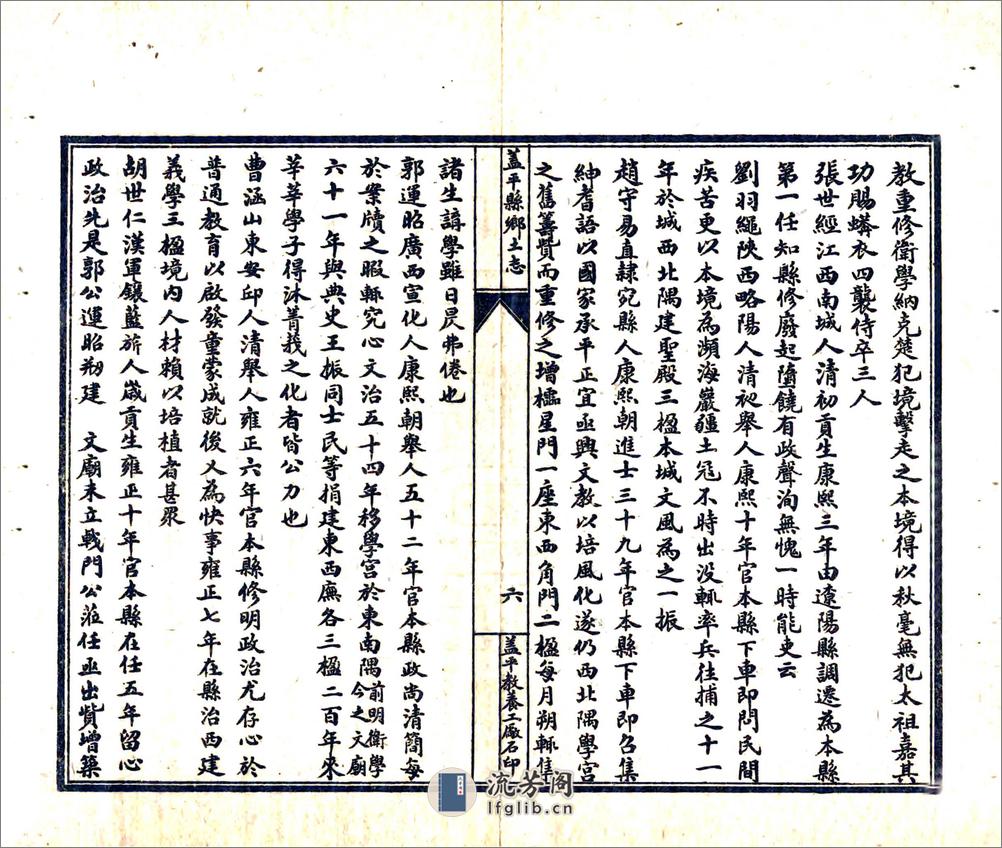 教重修衛學納克楚犯境擊走之本境得以秋毫無犯太祖嘉其
功賜蟒衣四襲侍卒三人
張世經江西南城人清初貢生康熙三年由遼陽縣調遷為本縣
第一任知縣修廢起墮饒有政聲洵無愧一時能吏云
劉羽繩陝西略陽人清初舉人康熙十年官本縣下車即問民間
疾苦更以本境為瀕海巖疆土寇不時出没輒率兵往捕之十一
年於城西北隅建聖殿三楹本城文風為之一振
趙守易直隸宛縣人康熙朝進士三十九年官本縣下車即召集
紳耆語以國家承平正宜亟興文教以培風化遂仍西北隅學宮
之舊籌貲而重修之增櫺星門一座東西角門二楹每月朔輒集
蓋平縣鄉土志
六
蓋平教養工廠石印
諸生諄學雖日昃弗倦也
郭運昭廣西宣化人康熙朝舉人五十二年官本縣政尚清簡每
於案牘之暇輒究心文治五十四年移學宮於東南隅前明衛學今之文廟
六十一年與典史王振同士民等捐建東西廡各三楹二百年來
莘莘學子得沐菁莪之化者皆公力也
曹涵山東安邱人清舉人雍正六年官本縣修明政治尤存心於
普通教育以啟發童蒙成就後人為快事雍正七年在縣治西建
義學三楹境內人材賴以培植者甚眾
胡世仁漢軍鑲藍旂人歲貢生雍正十年官本縣在任五年留心
政治先是郭公運昭剏建　文廟未立戟門公蒞任亟出貲增築
流芳阁
lfglib.cn